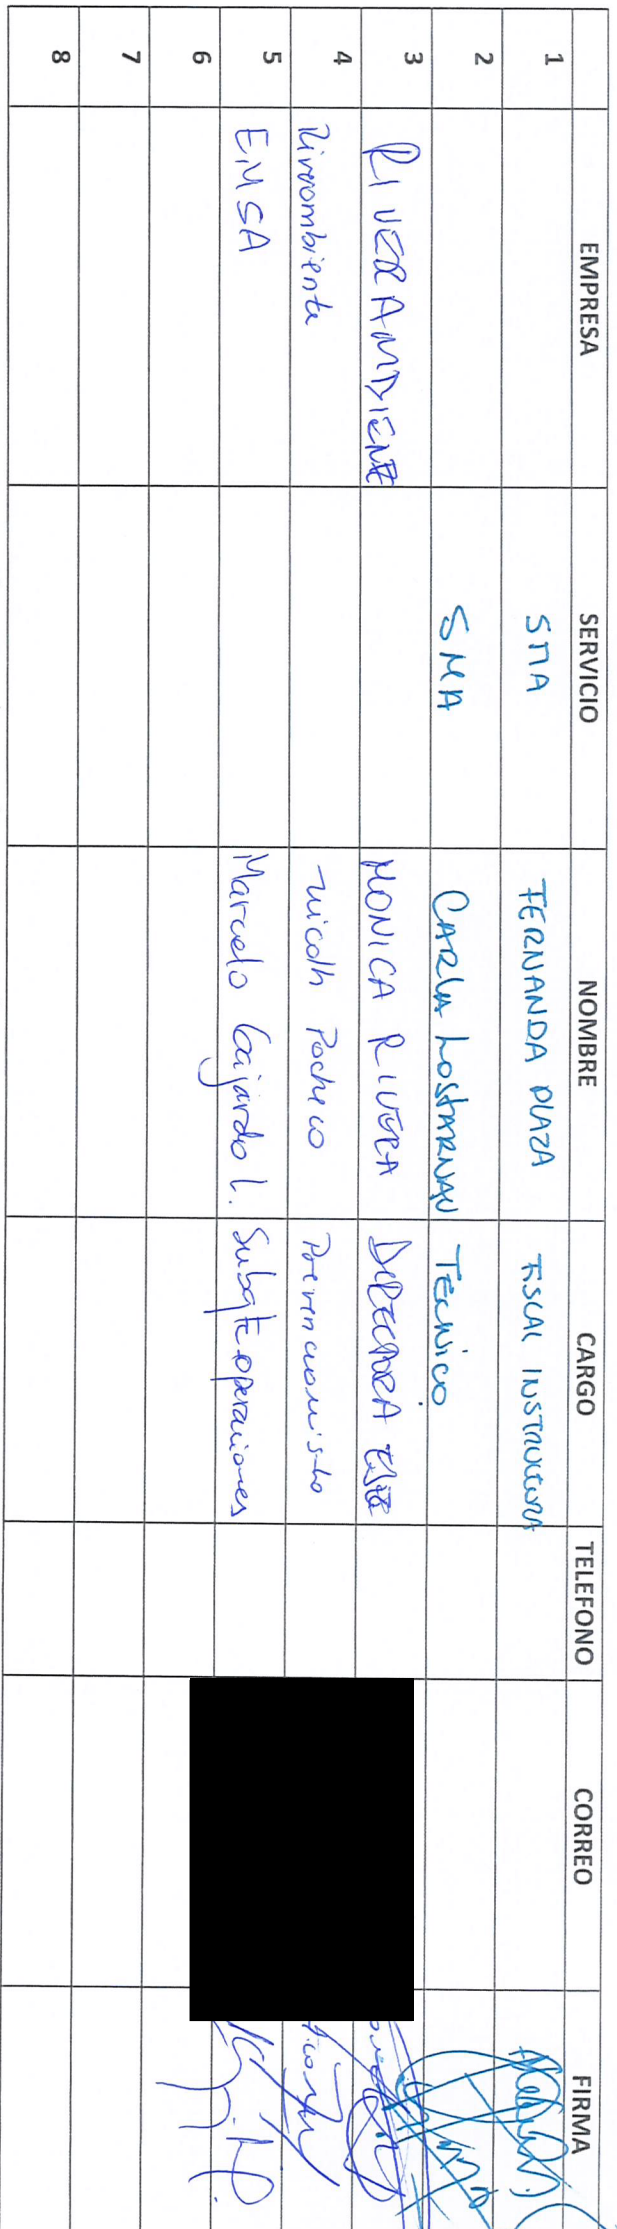 EMPRESA SERVICIO NOMBRE CARGO TELEFONO CORREO FIRMA
1 SMA FERNANDA PLAZA FISCAL INSTRUCTORA
2 SMA CARLA LOSTARNAU TECNICO
3 RIVERAMBIENTE MONICA RIVERA DIRECTORA
4 Riverambiente Nicolh Pacheco Prevencionista
5 EMSA Marcelo Gajardo L. Subgte operaciones
6
7
8